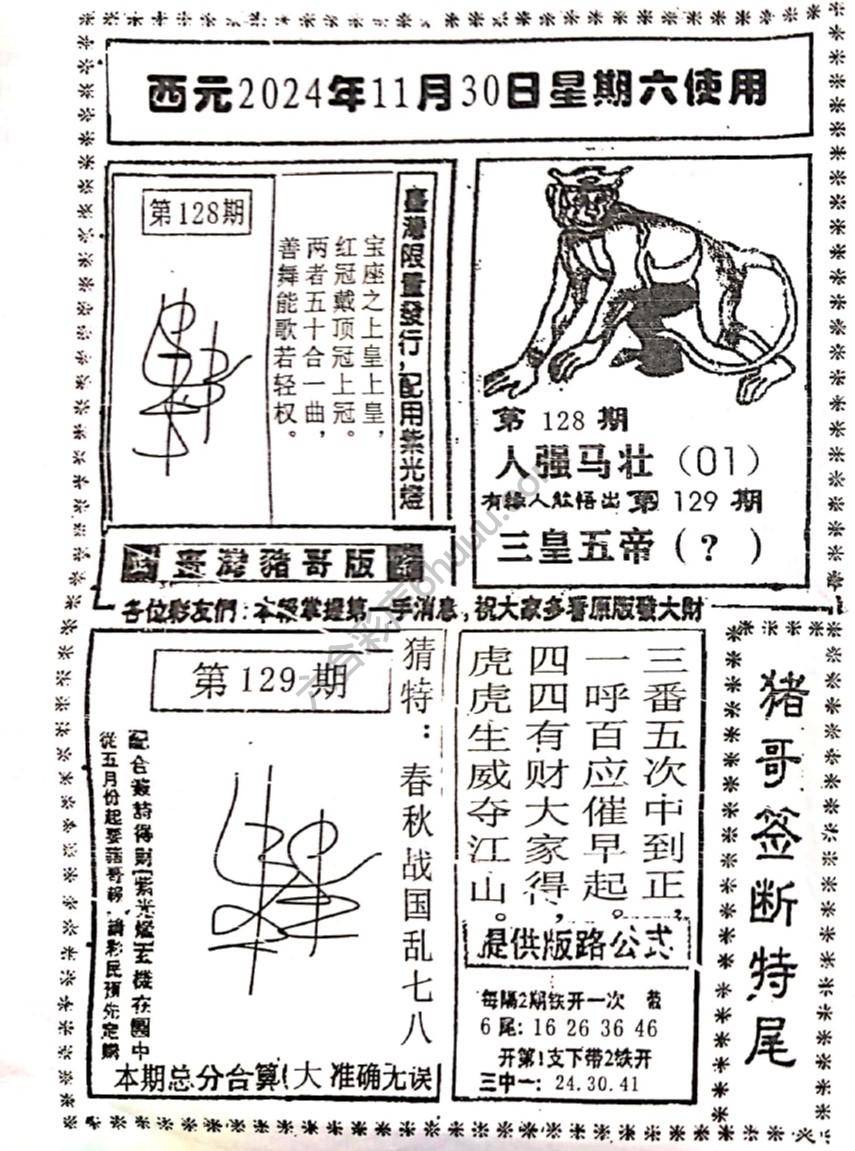 西元2024年11月30日星期六使用
第128期
臺灣限量發行,配用紫光燈
宝座之上皇上皇,
红冠戴顶冠上冠。
两者五十合一曲,
善舞能歌若轻权。
第 128 期
人强马壮（01）
有緣人能悟出 第 129 期
三皇五帝（?）
臺灣豬哥版
各位彩友們:本報掌握第一手消息,祝大家多看原版發大財
第129期
猜特：春秋战国乱七八
從五月份起要豬哥報,請彩民預先定購
本期总分合算(大 准确无误
三番五次中到正,
一呼百应催早起。
四四有财大家得,
虎虎生威夺江山。
提供版路公式
每隔2期铁开一次
6尾: 16 26 36 46
开第1支下带2铁开
三中一: 24.30.41
猪哥签断特尾